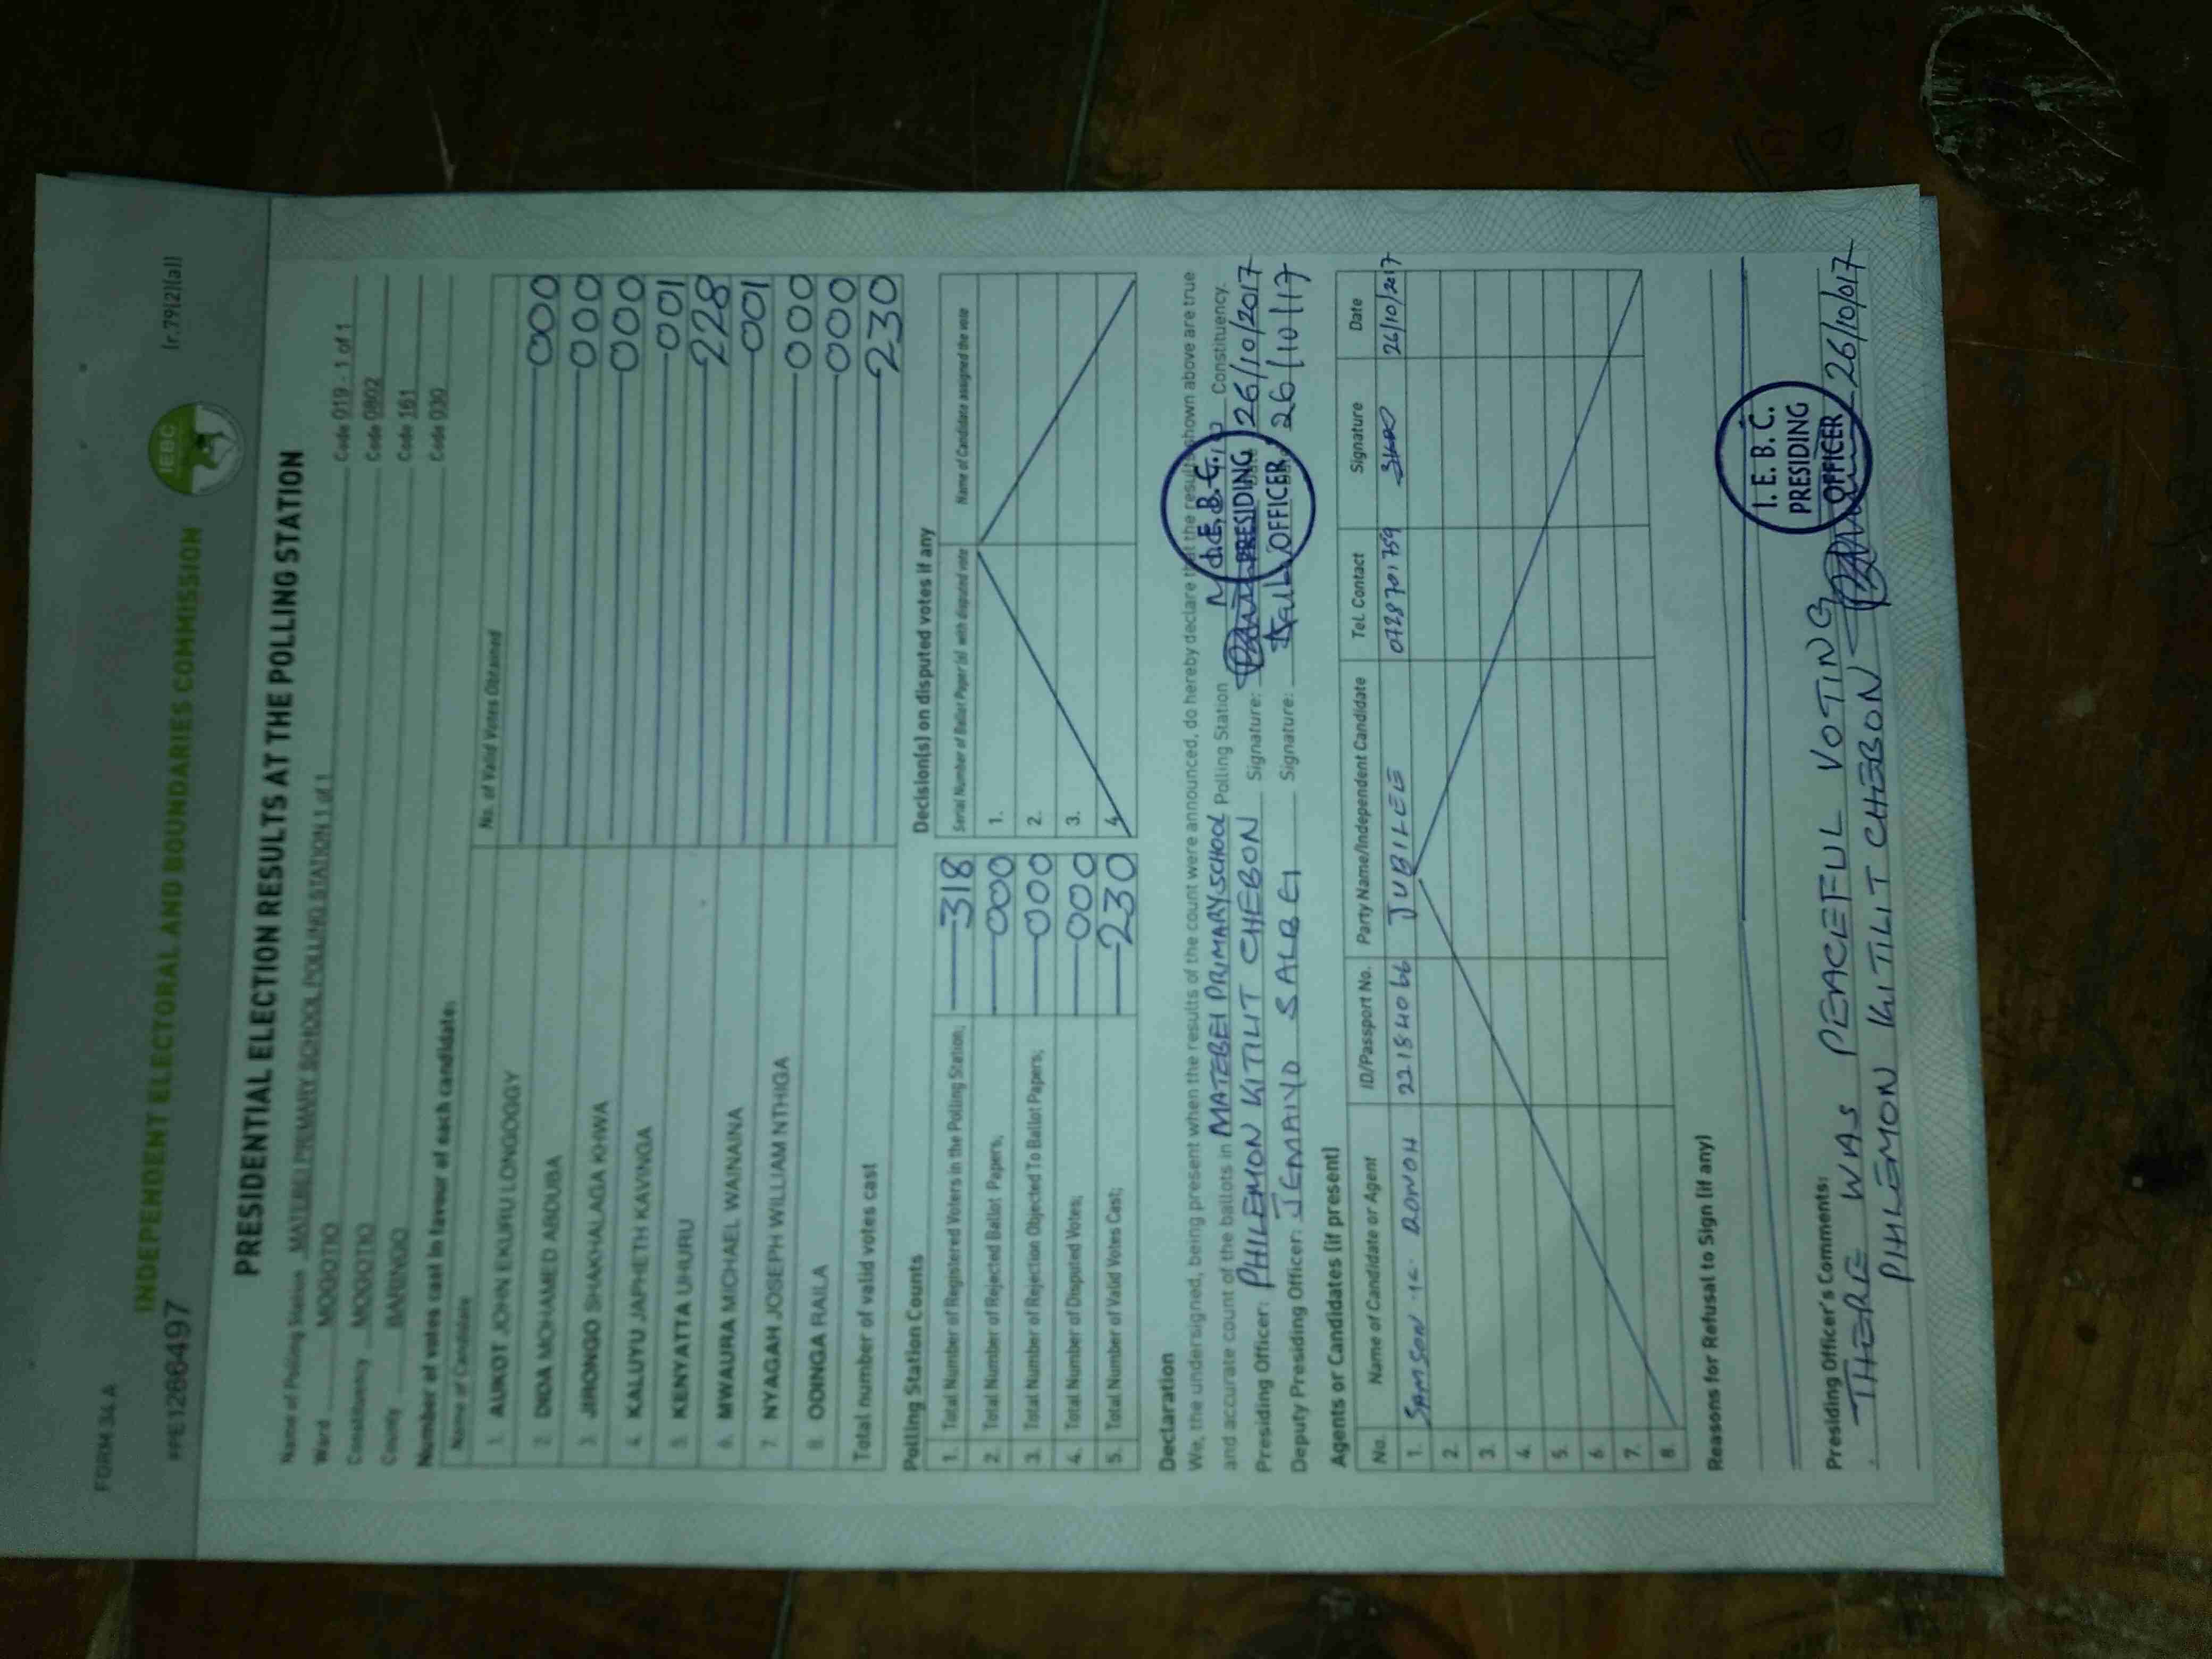 FORM 34A
(r.79(2)(a))
INDEPENDENT ELECTORAL AND BOUNDARIES COMMISSION
IEBC
PRESIDENTIAL ELECTION RESULTS AT THE POLLING STATION
Name of Polling Station MATEBEI PRIMARY SCHOOL POLLING STATION 1 of 1 Code 019 - 1 of 1
Ward MOGOTIO Code 0802
Constituency MOGOTIO Code 161
County BARINGO Code 030
Number of votes cast in favour of each candidate:
Name of Candidate No. of Valid Votes Obtained
1. AUKOT JOHN EKURU LONGOGGY 000
2. DIDA MOHAMED ABDUBA 000
3. JIRONGO SHAKHALAGA KHWA 000
4. KALUYU JAPHETH KAVINGA 001
5. KENYATTA UHURU 228
6. MWAURA MICHAEL WAINAINA 001
7. NYAGAH JOSEPH WILLIAM NTHIGA 000
8. ODINGA RAILA 000
Total number of valid votes cast 230
Polling Station Counts
1. Total Number of Registered Voters in the Polling Station; 318
2. Total Number of Rejected Ballot Papers; 000
3. Total Number of Rejection Objected To Ballot Papers; 000
4. Total Number of Disputed Votes; 000
5. Total Number of Valid Votes Cast; 230
Decision(s) on disputed votes if any
Serial Number of Ballot Paper (s) with disputed vote Name of Candidate assigned the vote
1.
2.
3.
4.
Declaration
We, the undersigned, being present when the results of the count were announced, do hereby declare that the results shown above are true
and accurate count of the ballots in MATEBEI PRIMARY SCHOOL Polling Station Constituency.
Presiding Officer: PHILEMON KITILIT CHEBON Signature: 26/10/2017
Deputy Presiding Officer: JEMAIYO SALBEI Signature: 26/10/17
I.E.B.C.
PRESIDING
OFFICER
Agents or Candidates (if present)
No. Name of Candidate or Agent ID/Passport No. Party Name/Independent Candidate Tel. Contact Signature Date
1. SAMSON 22184066 JUBILEE 0728701759 26/10/2017
2.
3.
4.
5.
6
7.
8.
Reasons for Refusal to Sign (if any)
I. E. B. C.
PRESIDING
OFFICER
Presiding Officer's Comments:
THERE WAS PEACEFUL VOTING
PHILEMON KITILIT CHEBON 26/10/017